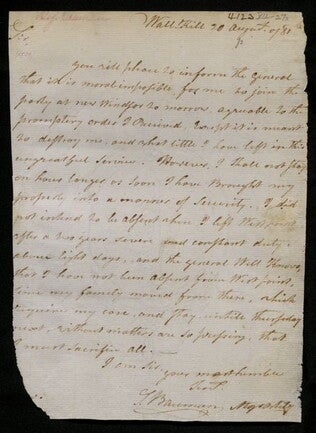 Wall Kill 20 August 1781
Sir
you will please to inform the general
that it is moral imposible, for me to join the
party at new Windsor to morrow, agreable to the
premptory order I Received, Except it is meant
to destroy me, and what little I have left in this
ungreatful Service. However, I shall not stay
on hour longer as soon I have Brought my
property into a manner of Security. I did
not intend to be absent when I left West point
after a two years severe and constant duty,
above Eight days, and the general Will Know,
that I have not been absent from West point,
since my family moved from there, which
require my care, and stay untill thursday
next, without matters are so pressing, that
I must Sacrifice all.—
I am Sir,
your most humble
Servt.
S. Bauman, Major